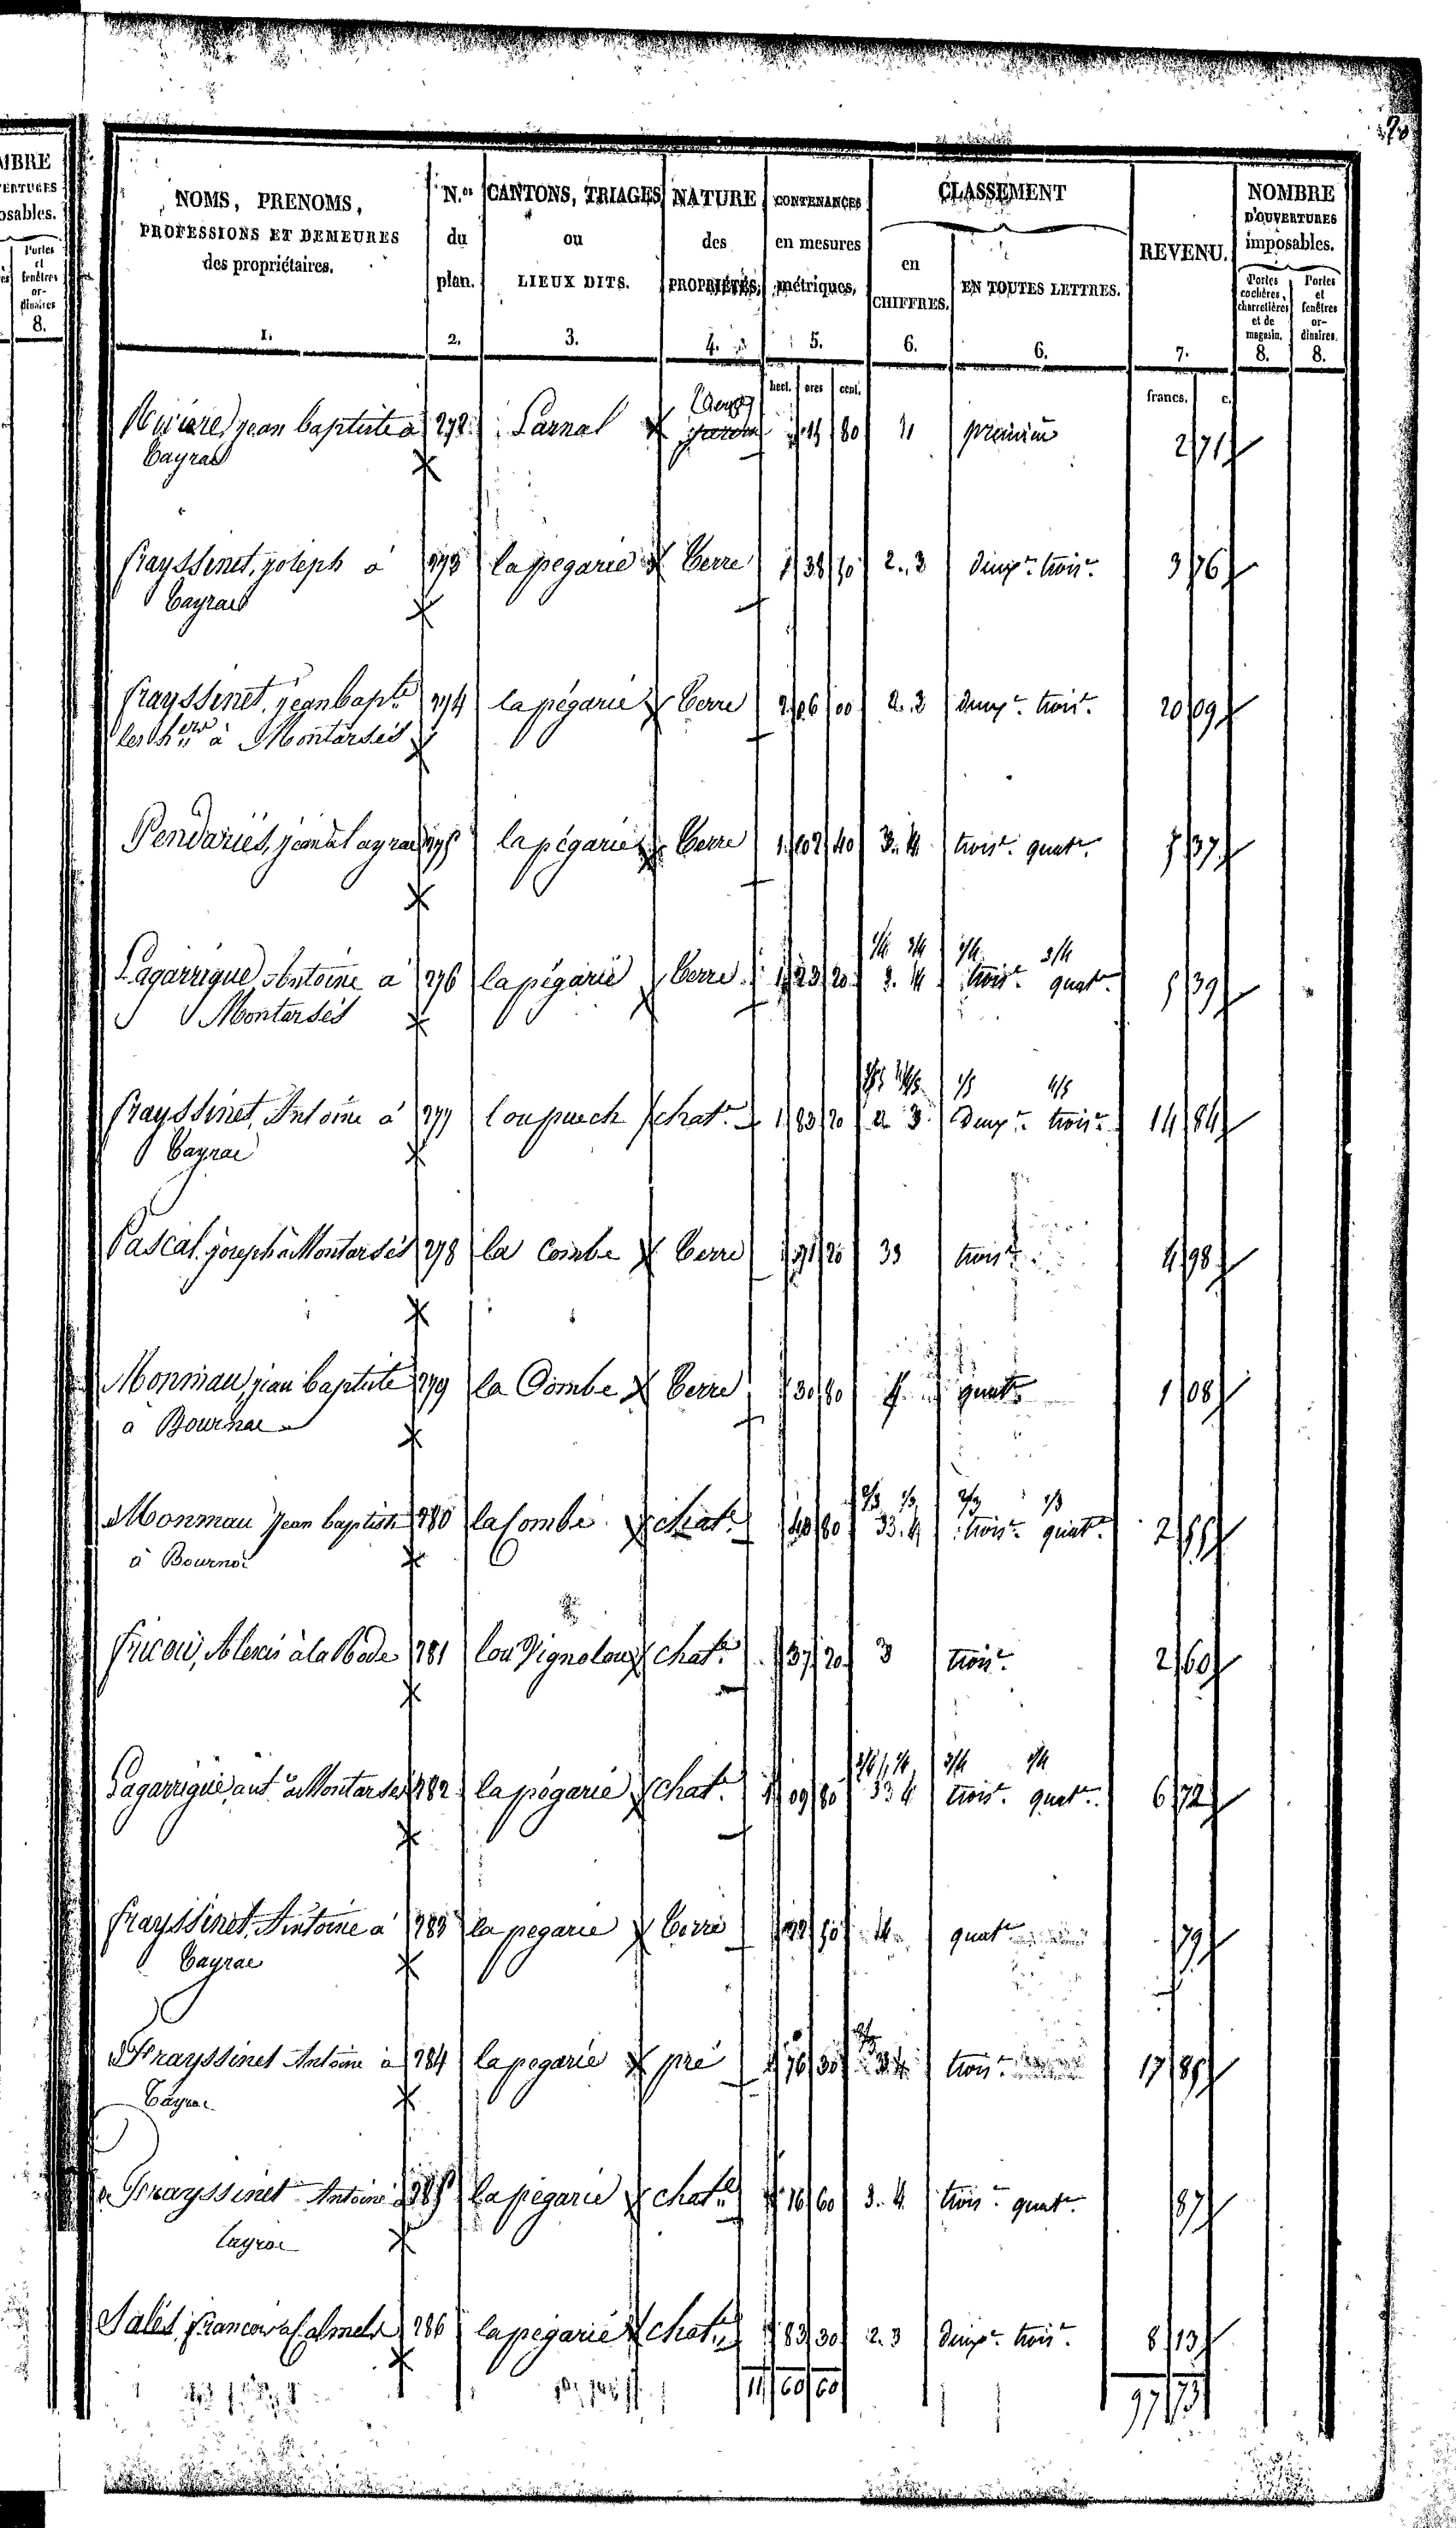 70
MBRE
osables.
Portes
et
fenêtres
or-
dinaires
8.
NOMS, PRENOMS,
PROFESSIONS ET DEMEURES
des propriétaires.
1.
N.os
du
plan.
2.
CANTONS, TRIAGES
ou
LIEUX DITS.
3.
NATURE
des
PROPRIÉTÉS,
4.
CONTENANCES
en mesures
métriques,
5.
CLASSEMENT
en
CHIFFRES.
6.
EN TOUTES LETTRES.
6.
REVENU.
7.
NOMBRE
D'OUVERTURES
imposables.
Portes
cochères,
charretières
et de
magasin.
8.
Portes
et
fenêtres
or-
dinaires.
8.
hect. ares cent.
francs. c.
jean baptiste a 272 Parnal 80 première 2 71
Cayrac
frayssinet, joseph à 273 la pegarie terre 1 38 50 2. 3 deuxe. troise. 3 76
Cayrac
frayssinet, jean bapte 274 la pégarie terre 2 06 00 2. 3 deuxe. troise. 20 09
les hers à Montarsés
Pendariés, jean à Cayrac 275 la pégarie terre 1 02 40 3. 4 troise. quate. 5 37
1/4 3/4 1/4 3/4
Lagarrigue, Antoine à 276 la pégarie terre 1 23 20 3. 4 troise. quate. 5 39
Montarsés
1/5 4/5 1/5 4/5
frayssinet, Antoine à 277 lou puech chate. 1 83 20 2 3 deuxe. troise. 14 84
Cayrac
Pascal, joseph à Montarsés 278 la Combe terre 20 33 troise. 4 98
Monmau, jean baptiste 279 la Combe terre 30 80 4 quate. 1 08
à Bournac
2/3 1/3 2/3 1/3
Monmau jean baptiste 280 la Combe chate. 40 80 33. 4 troise. quate. 2 55
à Bournac
fricou, Alexis à la Bode 281 lou Vignolou chate. 37 20 3 troise. 2 60
3/4 1/4 3/4 1/4
Lagarrigue, ant. à Montarsés 282 la pégarie chate. 1 09 80 33 4 troise. quate. 6 72
frayssinet, Antoine à 283 la pegarie terre 22 50 4 quate. 79
Cayrac
Frayssinet Antoine à 284 la pegarie pré 76 30 troise. 17 85
Cayrac
Frayssinet Antoine à 285 la pégarie chate. 16 60 3. 4 troise. quate. 87
Cayrac
Salés, francois à Calmels 286 la pégarie chate. 83 30 2. 3 deuxe. troise. 8 13
11 60 60 97 73